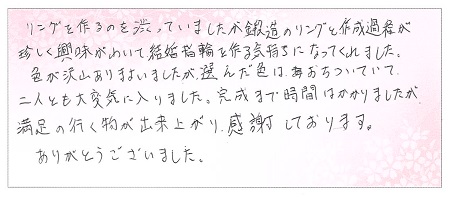 リングを作るのを渋っていましたが鍛造のリングと作成過程が
珍しく興味がわいて結婚指輪を作る気持ちになってくれました。
色が沢山ありまよいましたが、選んだ色は、毎おちついていて、
二人とも大変気に入りました。完成まで時間はかかりましたが、
満足の行く物が出来上がり、感謝しております。
ありがとうございました。